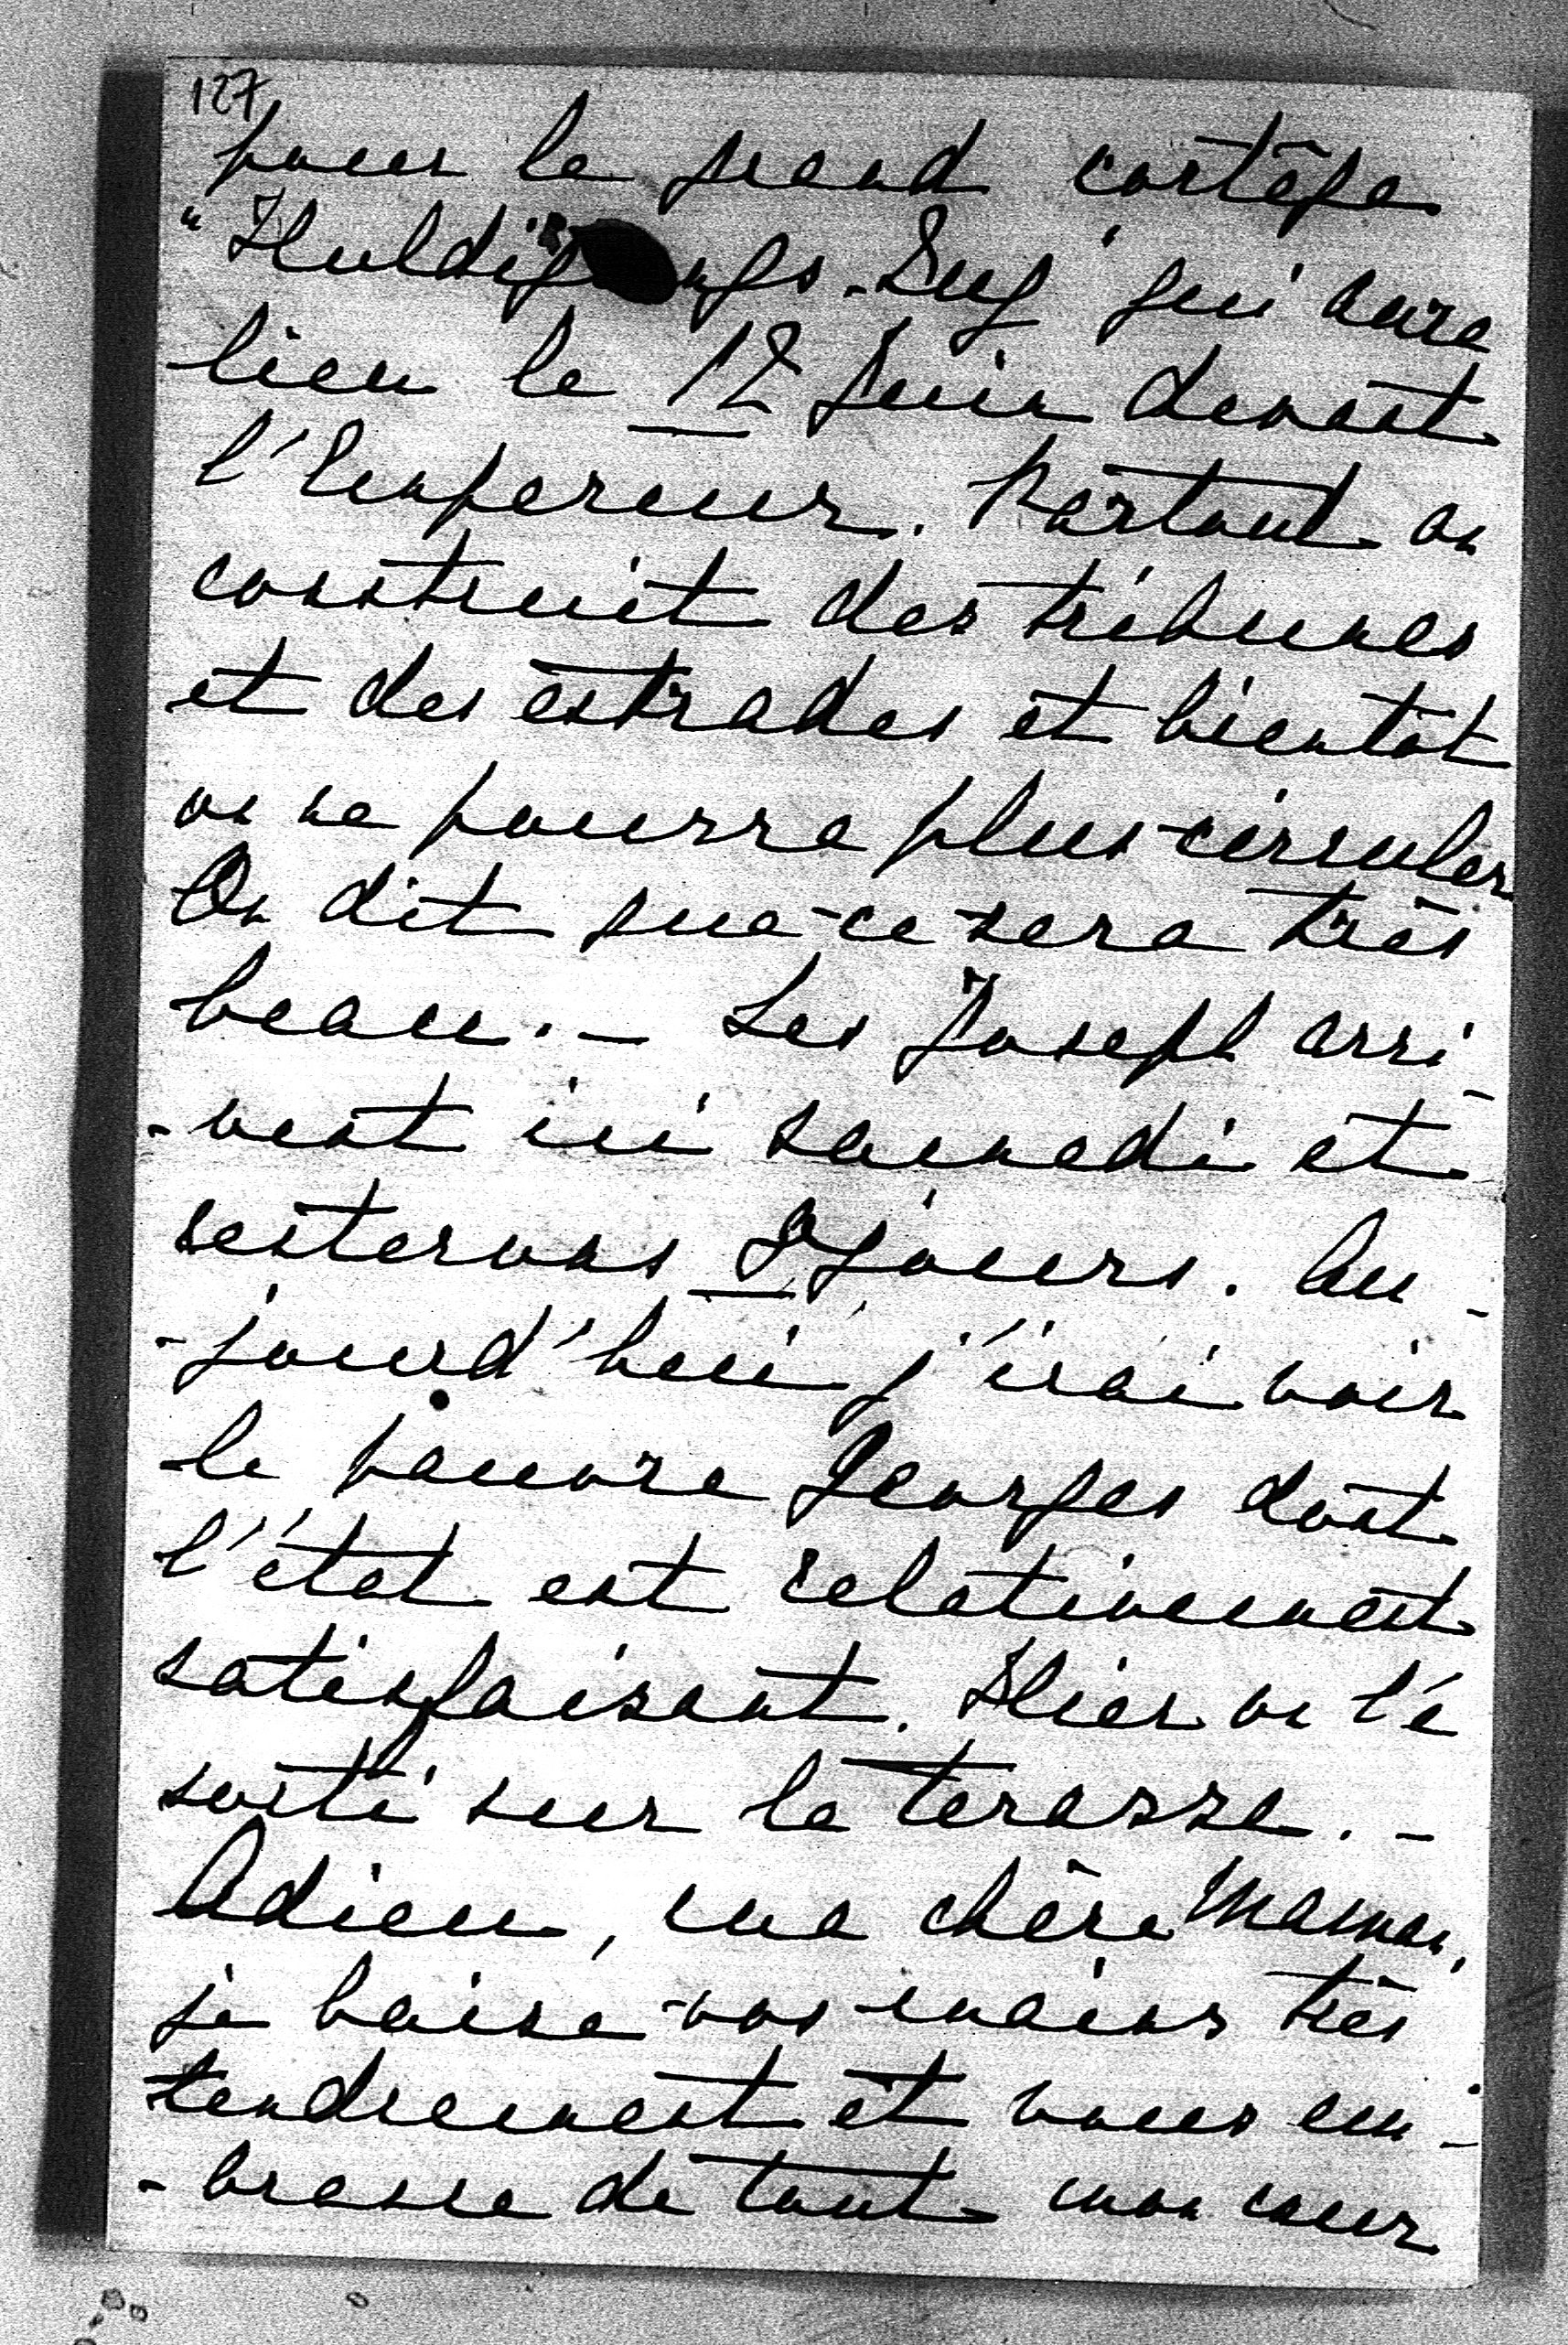 127
pour le grand cortège
"Huldigungs-Zug" qui aura
lieu le 12 Juin devant
l'Empereur. Partout on
construit des tribunes
et des estrades et bientôt
on ne pourra plus circuler
On dit que ce sera très
beau. — Les Joseph arri-
-vent ici samedi et
resterons 8 jours. Au-
-jourd'hui j'irai voir
le pauvre Georges dont
l'état est relativement
satisfaisant. Hier on l'a
sorti sur la terasse. —
Adieu, ma chère Maman,
je baise vos mains très
tendrement et vous em-
-brasse de tout mon cœur